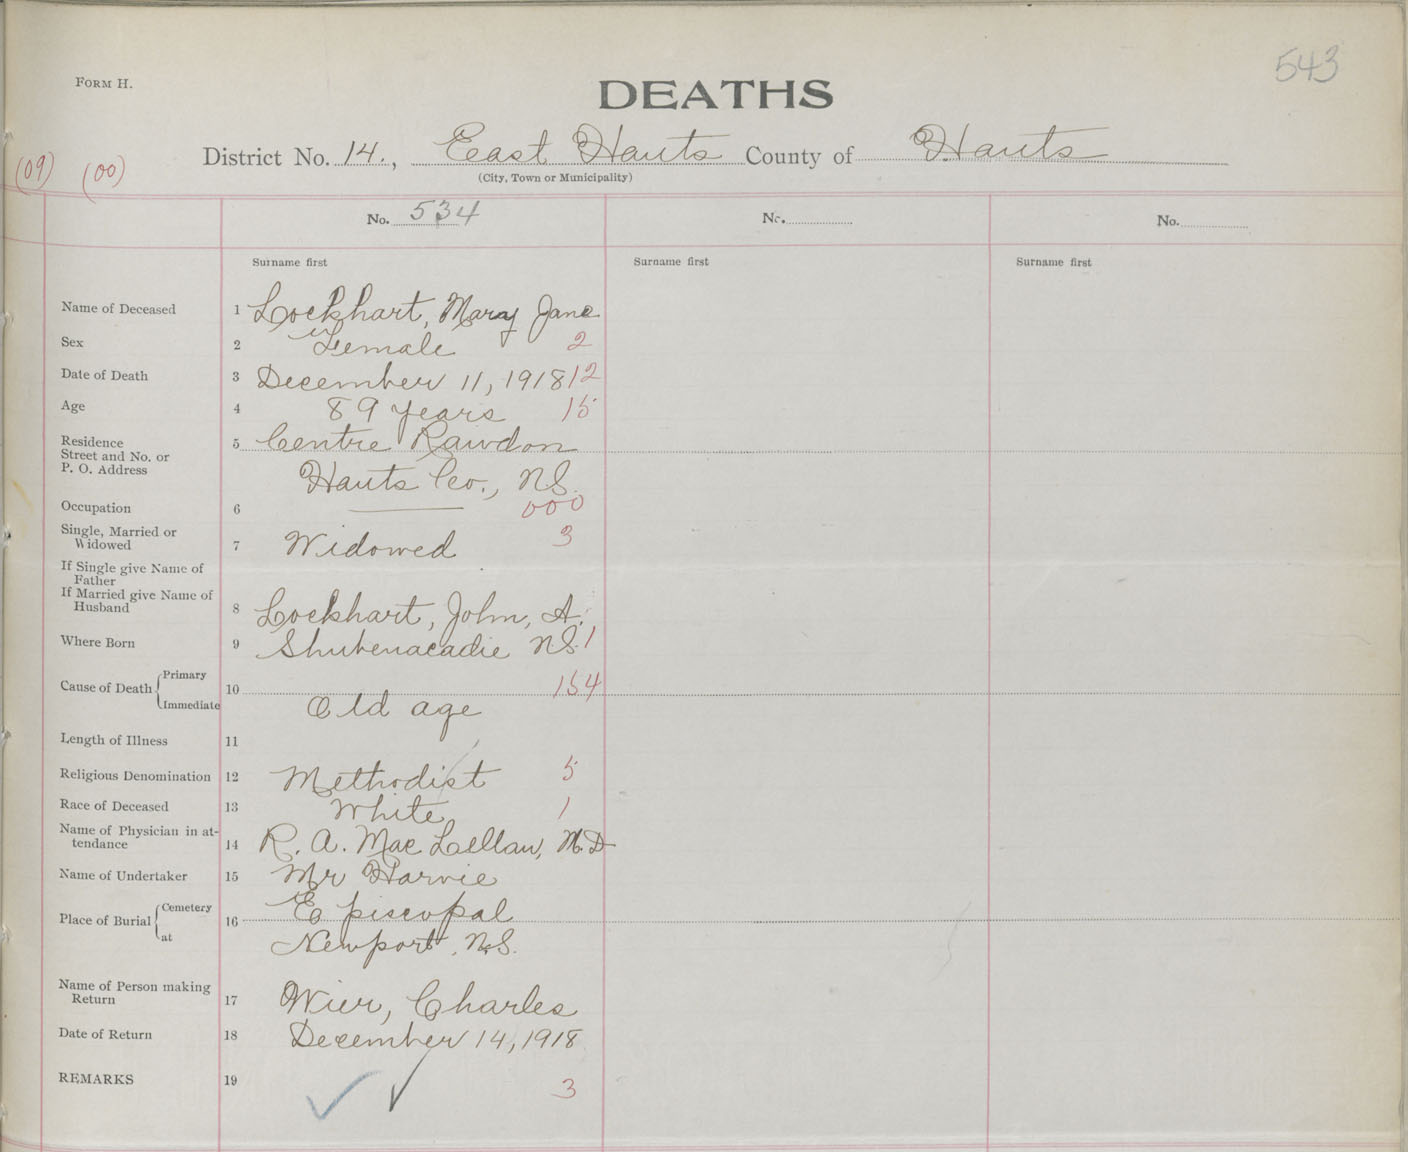 543
FORM H.
DEATHS
District No. 14., East Hants County of Hants
(City, Town or Municipality)
(09) (00)
No. 534 No. No.
Surname first Surname first Surname first
Name of Deceased 1 Lockhart, Mary Jane
Sex 2 Female 2
Date of Death 3 December 11, 1918 12
Age 4 89 years 15
Residence 5 Centre Rawdon
Street and No. or
P. O. Address Hants Co., N.S.
Occupation 6 —— 000
Single, Married or
Widowed 7 Widowed 3
If Single give Name of
Father
If Married give Name of
Husband 8 Lockhart, John, A.
Where Born 9 Shubenacadie N.S. 1
Cause of Death { Primary 10 154
Immediate Old age
Length of Illness 11
Religious Denomination 12 Methodist 5
Race of Deceased 13 White 1
Name of Physician in at-
tendance 14 R. A. MacLellan, M.D
Name of Undertaker 15 Mr Harvie
Place of Burial { Cemetery 16 Episcopal
at Newport, N.S.
Name of Person making
Return 17 Wier, Charles
Date of Return 18 December 14, 1918
REMARKS 19 ✓ ✓ 3